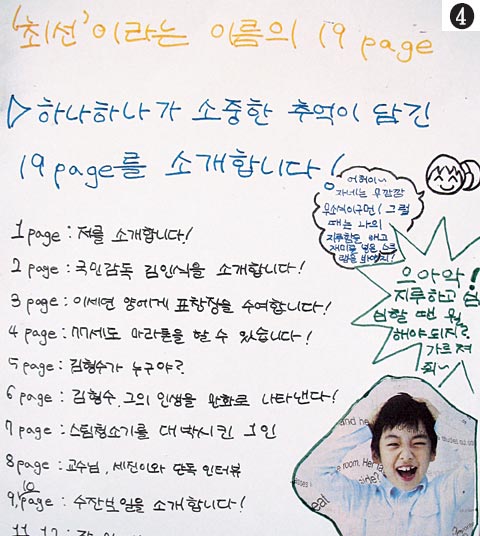 4
'최선'이라는 이름의 19 page
▷하나하나가 소중한 추억이 담긴
19page를 소개합니다!
어허이~
자네는 무깜깜
무소식이구먼! 그럴
때는 나의
지루함을 없애고
재미를 넣은 스크
랩을 봐야지!
으아악!
지루하고 심
심할 땐 뭘
해야되지?
가르쳐
줘~
1 page : 저를 소개합니다!
2 page : 국민감독 김인식을 소개합니다!
3 page : 이세연 양에게 표창장을 수여합니다!
4 page : 77세도 마라톤을 할 수 있습니다!
5 page : 김형수가 누구야?
6 page : 김형수, 그의 인생을 만화로 나타낸다!
7 page : 스팀청소기를 대박시킨 그인
8 page : 교수님, 세진이와 단독 인터뷰
9, 10 page : 수잔보일을 소개합니다!
and he
room. Her
side?
eat